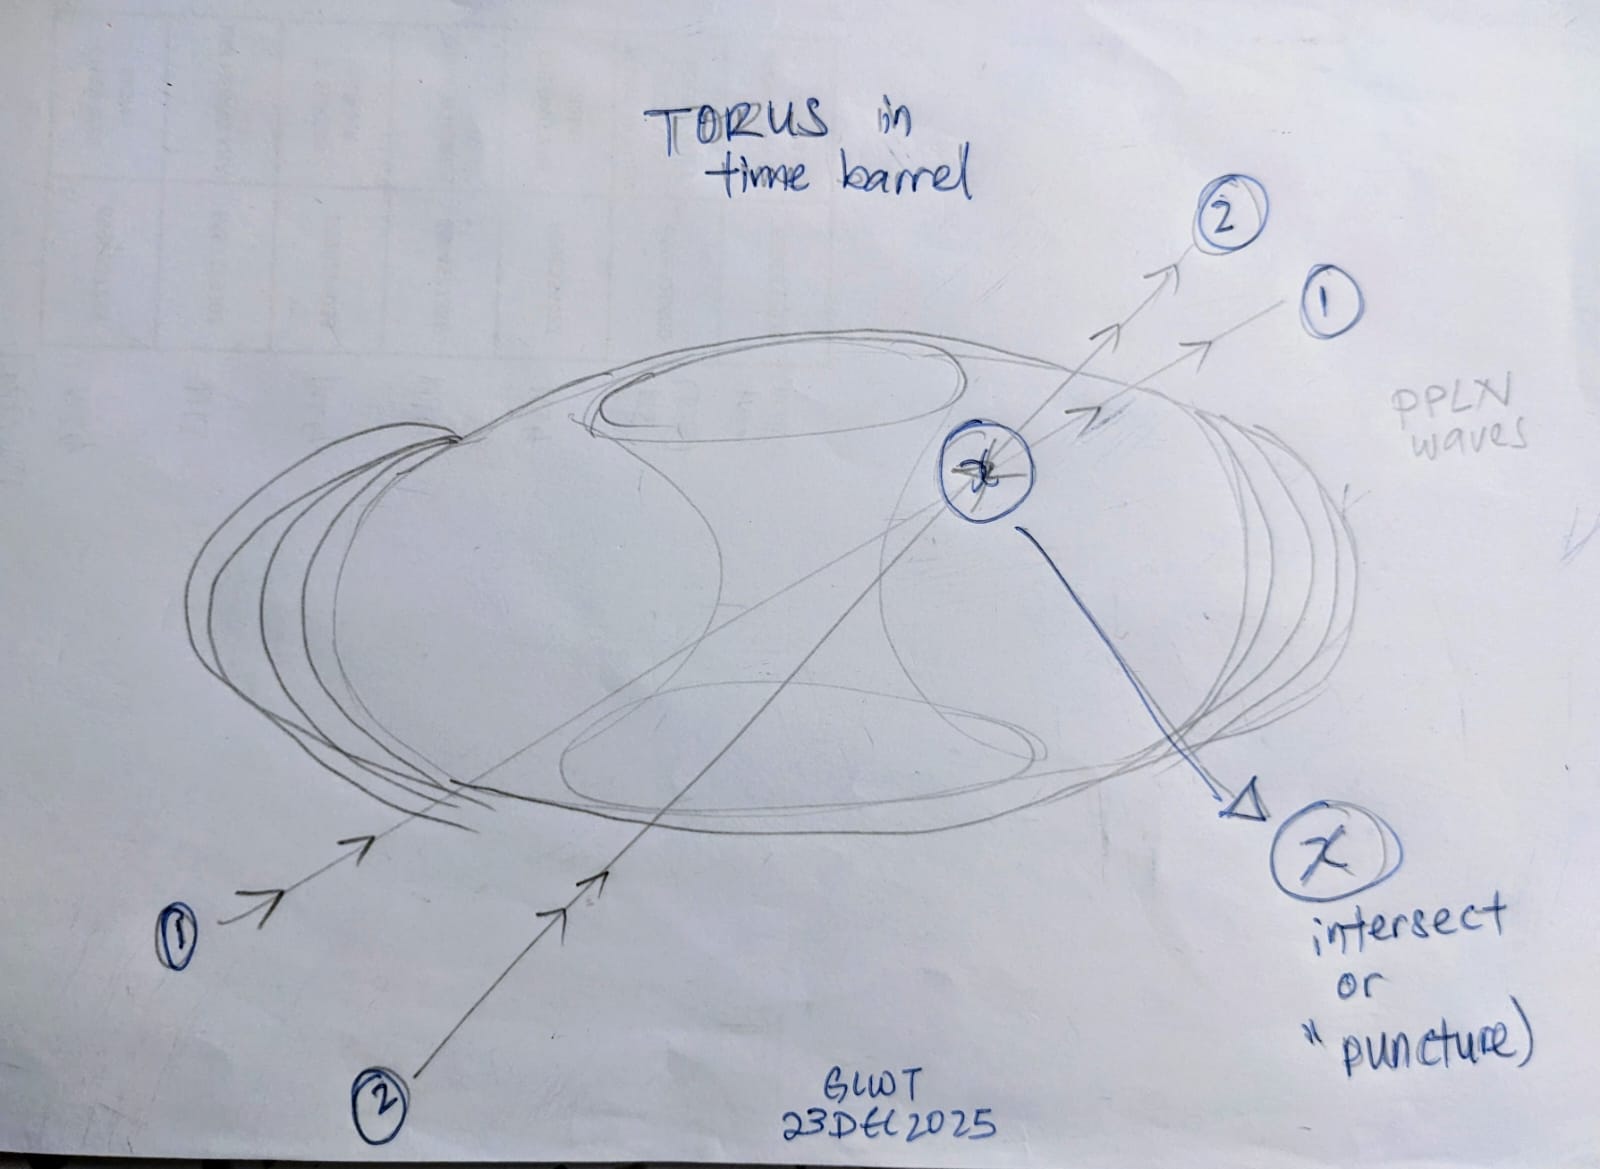 TORUS in
time barrel
2
1
PPLN
waves
x
1
x
intersect
or
" puncture)
2
GWT
23 DEC 2025